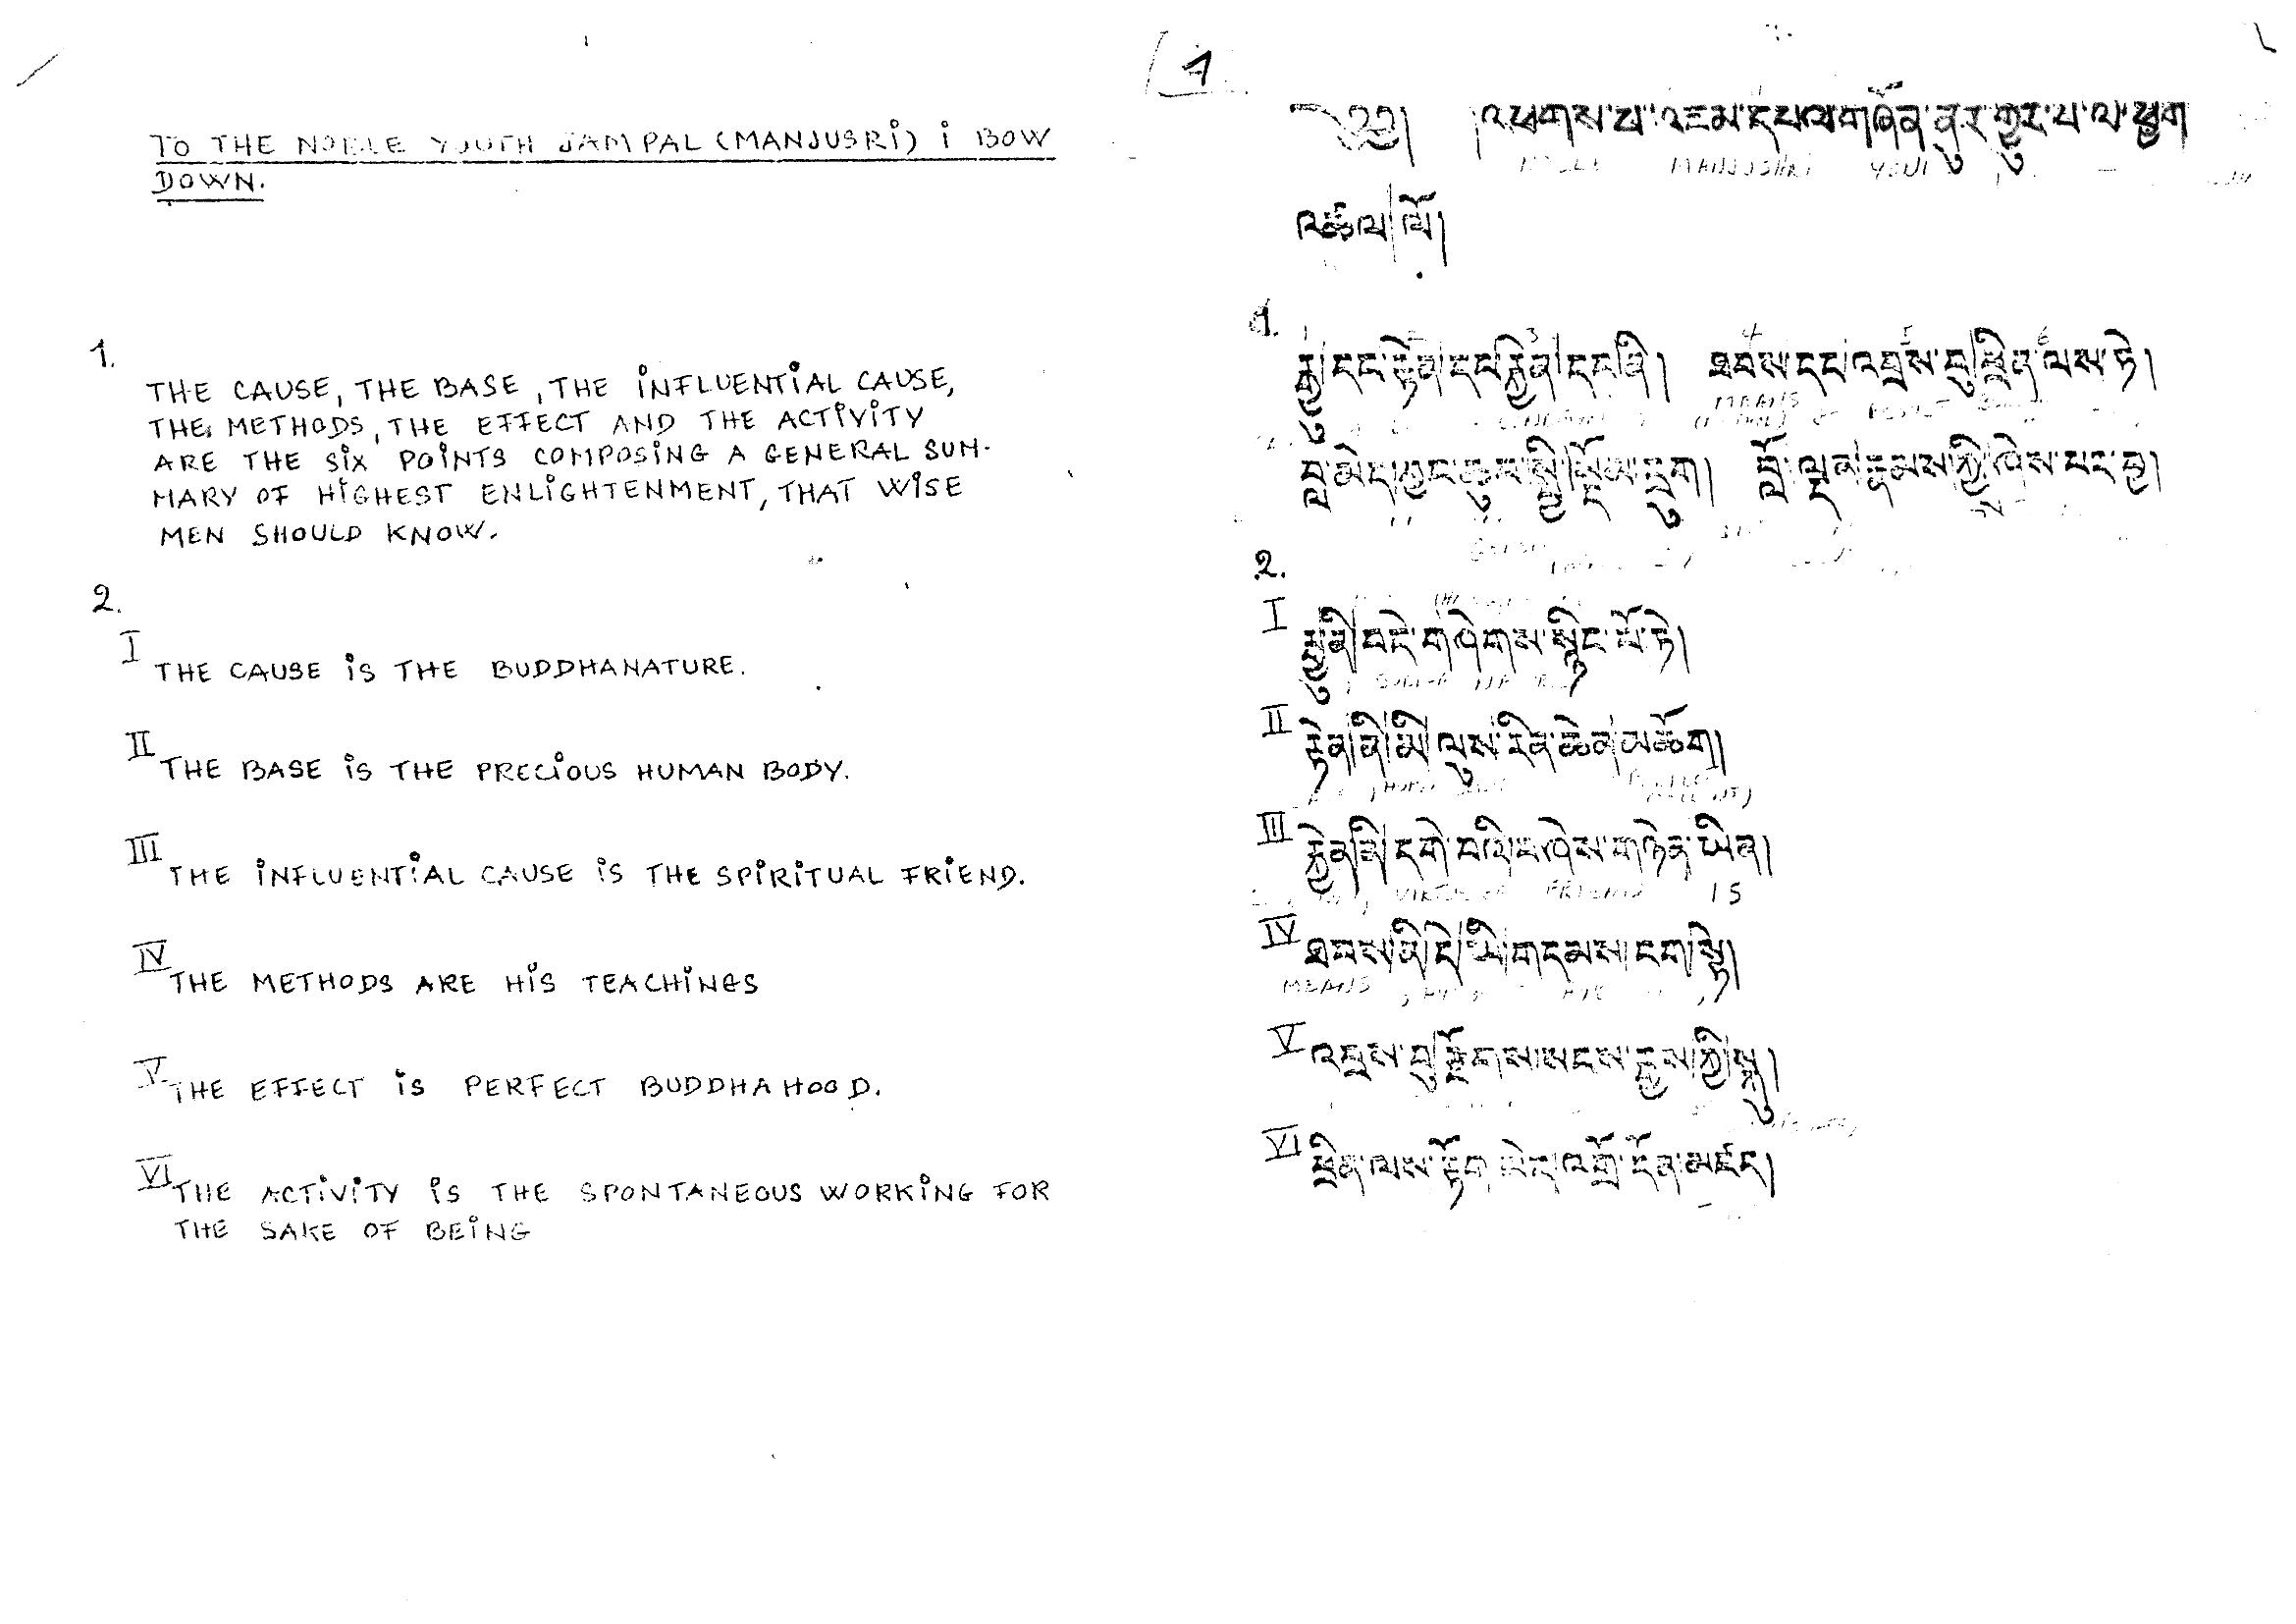 TO THE NOBLE YOUTH JAMPAL (MANJUSRI) I BOW
DOWN.
1.
THE CAUSE, THE BASE, THE INFLUENTIAL CAUSE,
THE METHODS, THE EFFECT AND THE ACTIVITY
ARE THE SIX POINTS COMPOSING A GENERAL SUM-
MARY OF HIGHEST ENLIGHTENMENT, THAT WISE
MEN SHOULD KNOW.
2.
I THE CAUSE IS THE BUDDHANATURE.
II THE BASE IS THE PRECIOUS HUMAN BODY.
III THE INFLUENTIAL CAUSE IS THE SPIRITUAL FRIEND.
IV THE METHODS ARE HIS TEACHINGS
V THE EFFECT IS PERFECT BUDDHAHOOD.
VI THE ACTIVITY IS THE SPONTANEOUS WORKING FOR
THE SAKE OF BEING
1
༄༅། །འཕགས་པ་འཇམ་དཔལ་གཞོན་ནུར་གྱུར་པ་ལ་ཕྱག
MANJUSHRI
འཚལ་ལོ།
1.
རྒྱུ་དང་རྟེན་དང་རྐྱེན་དང་ནི། ཐབས་དང་འབྲས་བུ་ཕྲིན་ལས་ཏེ།
MEANS
བླ་མེད་བྱང་ཆུབ་སྤྱི་སྡོམ་དྲུག། བློ་ལྡན་རྣམས་ཀྱི་ཤེས་པར་བྱ།
2.
I རྒྱུ་ནི་བདེ་གཤེགས་སྙིང་པོ་ཏེ།
II རྟེན་ནི་མི་ལུས་རིན་ཆེན་མཆོག།
III རྐྱེན་ནི་དགེ་བའི་བཤེས་གཉེན་ཡིན།
FRIEND IS
IV ཐབས་ནི་དེ་ཡི་གདམས་ངག་སྟེ།
MEANS
V འབྲས་བུ་རྫོགས་སངས་རྒྱས་ཀྱི་སྐུ།
VI ཕྲིན་ལས་རྟོག་མེད་འགྲོ་དོན་མཛད།